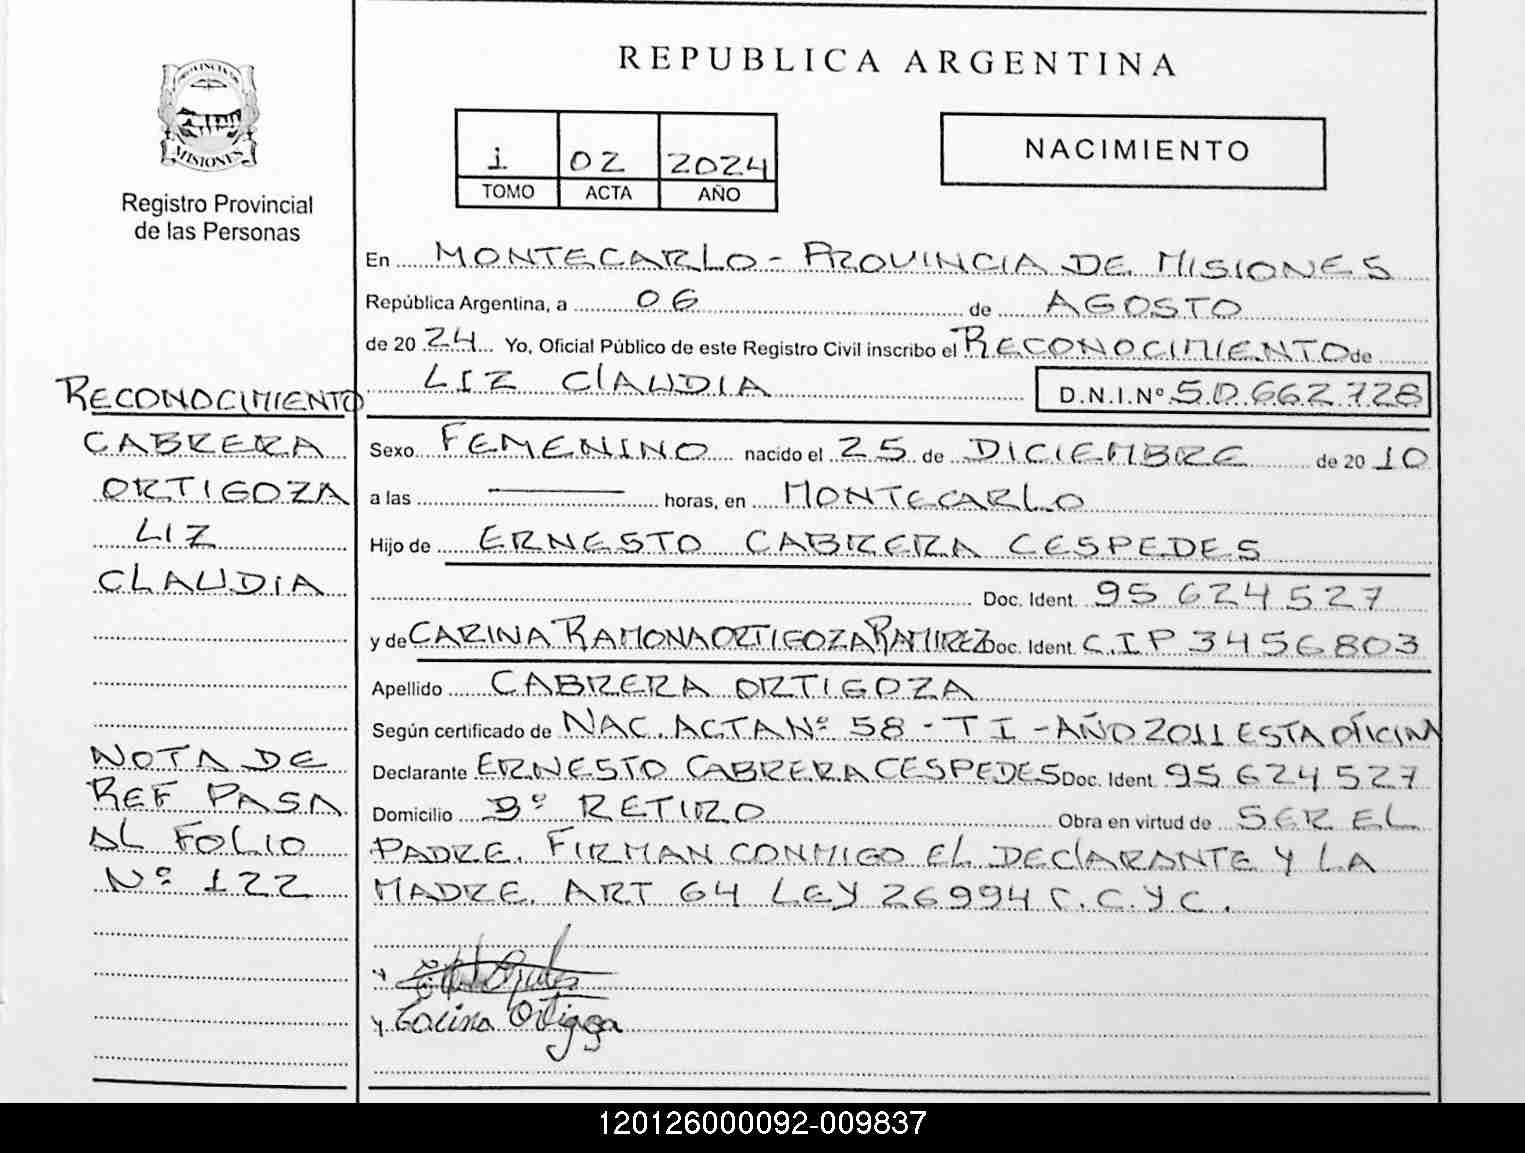 REPUBLICA ARGENTINA
PROVINCIA DE
MISIONES
Registro Provincial
de las Personas
1 02 2024
TOMO ACTA AÑO
NACIMIENTO
En MONTECARLO - PROVINCIA DE MISIONES
República Argentina, a 06 de AGOSTO
de 20 24 Yo, Oficial Público de este Registro Civil inscribo el RECONOCIMIENTO de
LIZ CLAUDIA D.N.I.Nº 50.662.728
RECONOCIMIENTO
CABRERA
ORTIGOZA
LIZ
CLAUDIA
NOTA DE
REF PASA
AL FOLIO
Nº 122
Sexo FEMENINO nacido el 25 de DICIEMBRE de 20 10
a las horas, en MONTECARLO
Hijo de ERNESTO CABRERA CESPEDES
Doc. Ident. 95 624 527
y de CARINA RAMONA ORTIGOZA RAMIREZ Doc. Ident. C.I P 3456803
Apellido CABRERA ORTIGOZA
Según certificado de NAC. ACTA Nº 58 - T I - AÑO 2011 ESTA OFICINA
Declarante ERNESTO CABRERA CESPEDES Doc. Ident. 95 624 527
Domicilio Bº RETIRO Obra en virtud de SER EL
PADRE. FIRMAN CONMIGO EL DECLARANTE Y LA
MADRE. ART 64 LEY 26994 C.C.Y C.
Carina Ortigoza
120126000092-009837